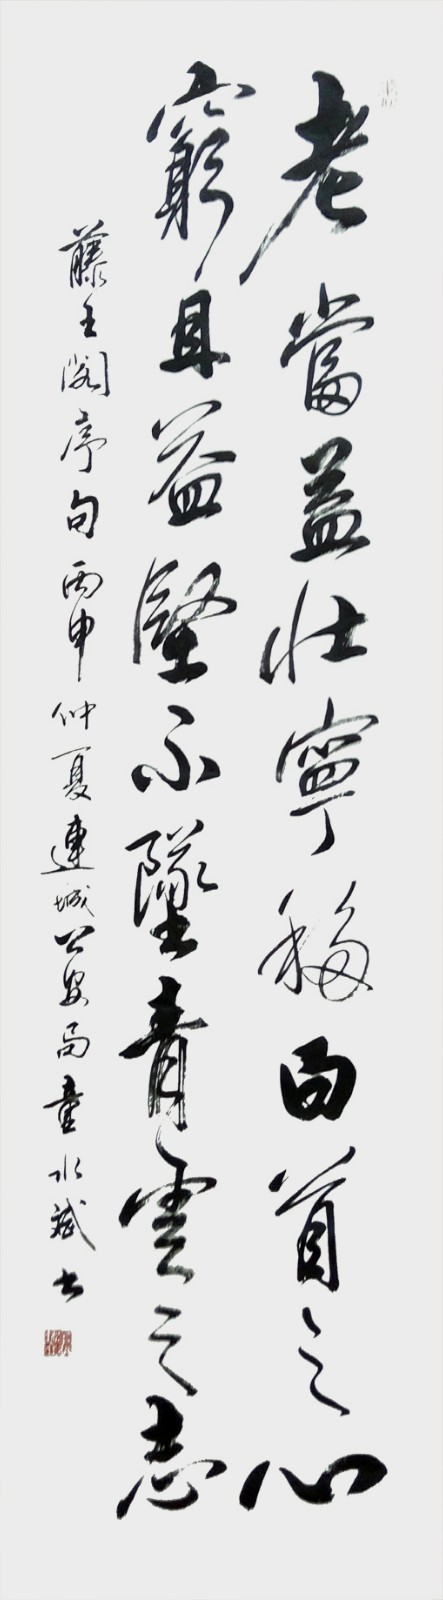 老當益壯寧移白首之心
窮且益堅不墜青雲之志
藤王閣序句丙申仲夏連城公安局童水斌书